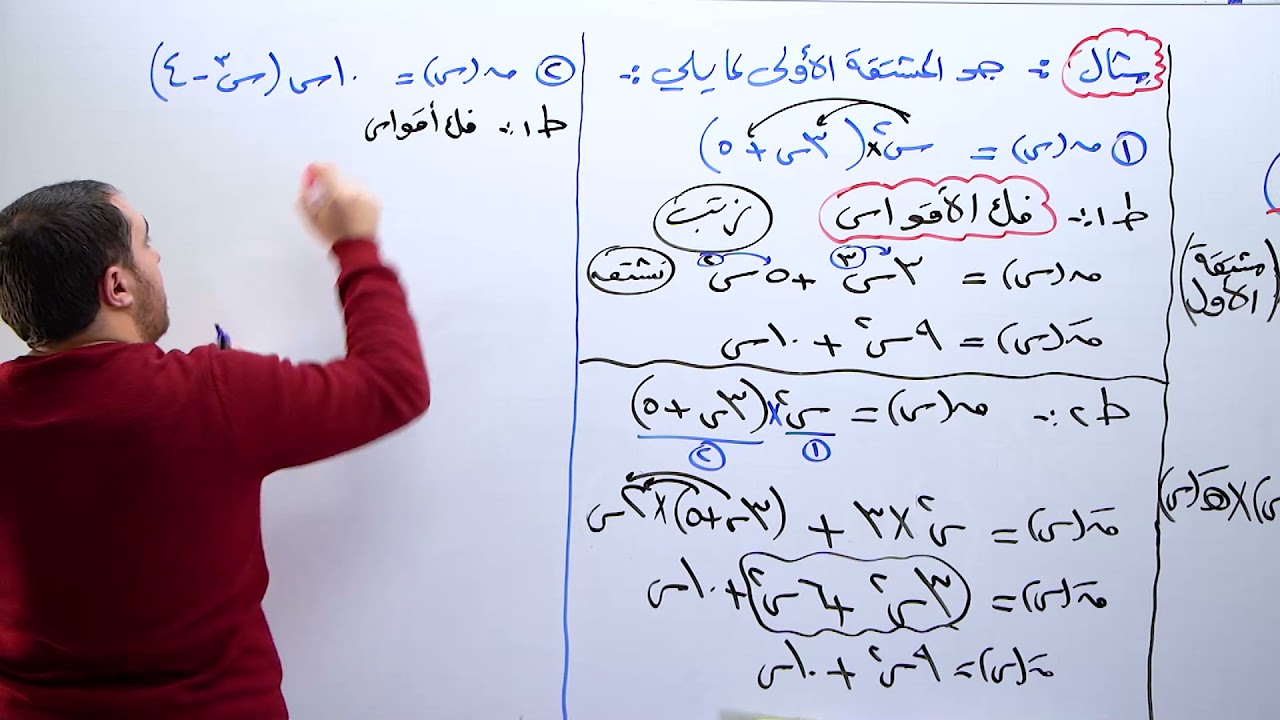 مثال :- جد المشتقة الأولى لما يلي :-
① ق(س) = س² × (٣س + ٥)
ط١ :- فك الأقواس نرتب
ق(س) = ٣س³ + ٥س² نشتق
قَ(س) = ٩س² + ١٠س
ط٢ :- ق(س) = س² × (٣س + ٥)
① ②
قَ(س) = س² × ٣ + (٣س + ٥) × ٢س
قَ(س) = ٣س² + ٦س² + ١٠س
قَ(س) = ٩س² + ١٠س
② ق(س) = ١٠س (س³ - ٤)
ط١ :- فك أقواس
مشتقة
الأول